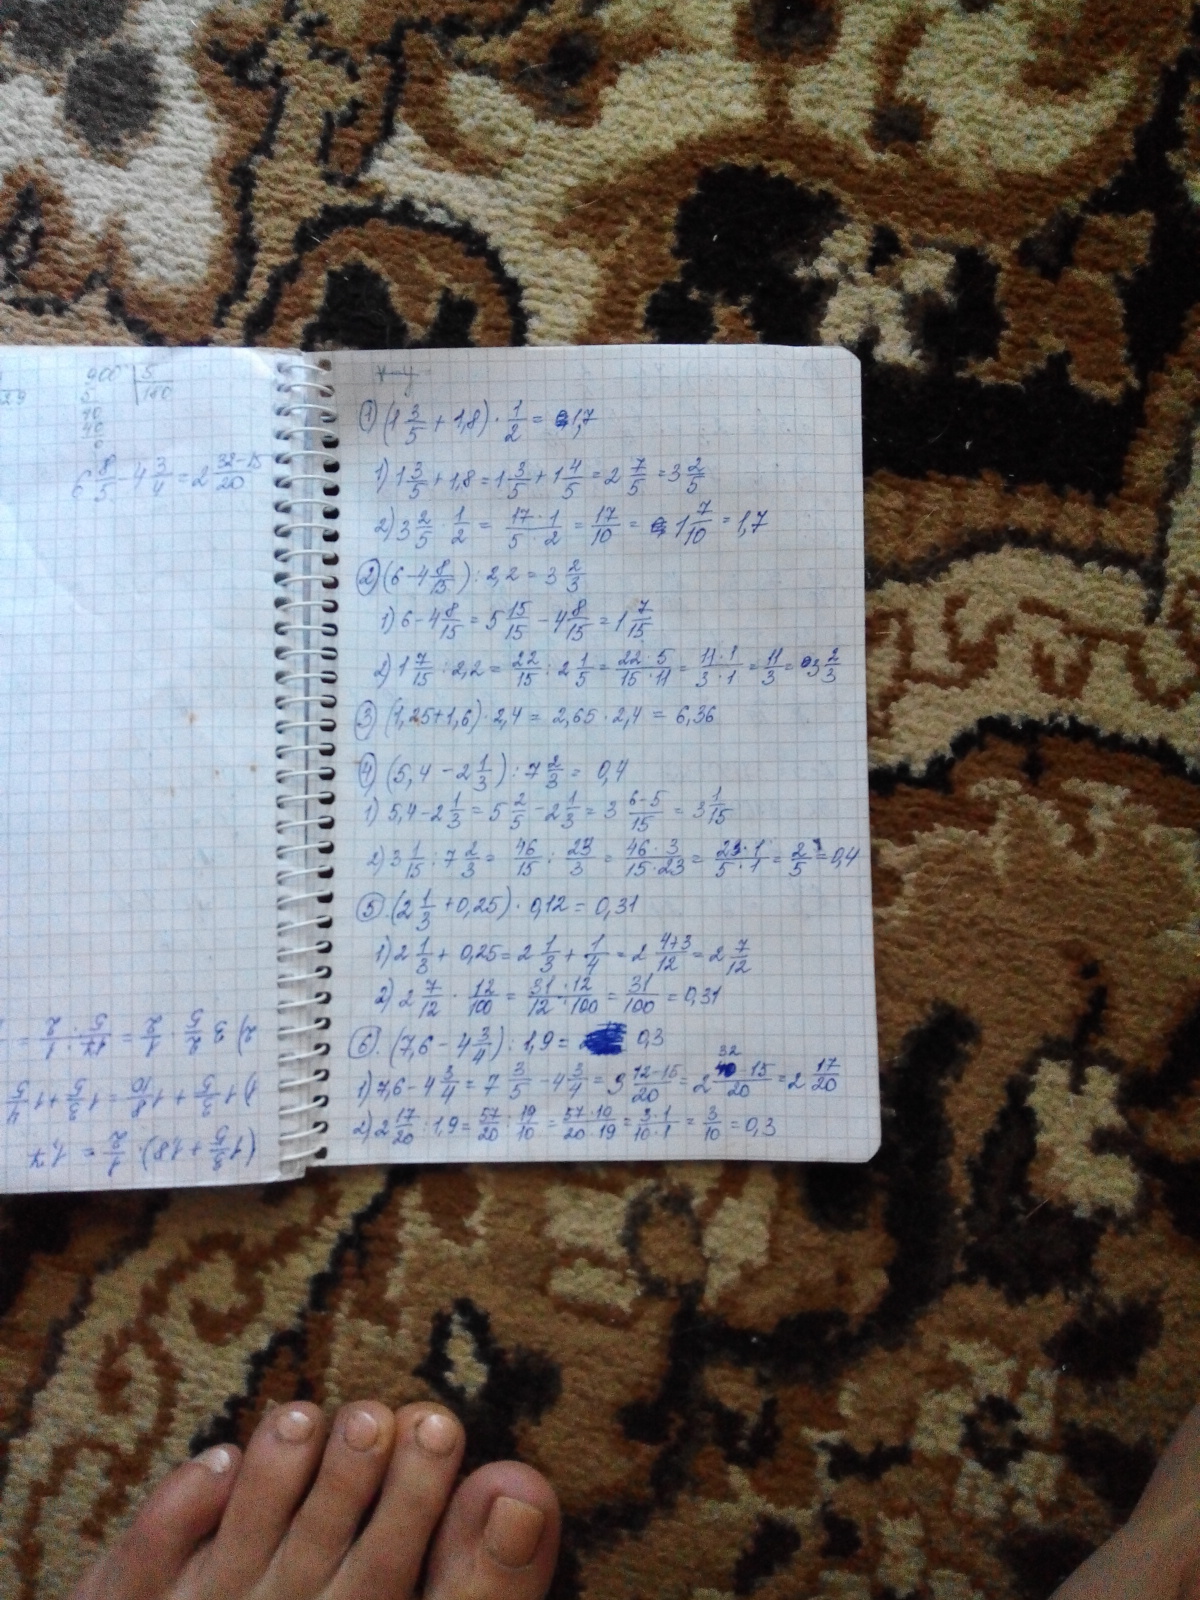 400 | 5
5
40
40
0
6 8/5 - 4 3/4 = 2 (32-15)/20
(1 3/5 + 1,8) · 1/2 = 1,7
1) 1 3/5 + 1 8/10 = 1 3/5 + 1 4/5
2) 3 2/5 · 1/2 = (17·1)/(5·2) =
1) (1 3/5 + 1,8) · 1/2 = 1,7
1) 1 3/5 + 1,8 = 1 3/5 + 1 4/5 = 2 7/5 = 3 2/5
2) 3 2/5 · 1/2 = (17·1)/(5·2) = 17/10 = 1 7/10 = 1,7
2) (6 - 4 8/15) : 2,2 = 3 2/3
1) 6 - 4 8/15 = 5 15/15 - 4 8/15 = 1 7/15
2) 1 7/15 : 2,2 = 22/15 : 2 1/5 = (22·5)/(15·11) = (11·1)/(3·1) = 11/3 = 3 2/3
3) (1,25+1,6) · 2,4 = 2,65 · 2,4 = 6,36
4) (5,4 - 2 1/3) : 7 2/3 = 0,4
1) 5,4 - 2 1/3 = 5 2/5 - 2 1/3 = 3 (6-5)/15 = 3 1/15
2) 3 1/15 : 7 2/3 = 46/15 : 23/3 = (46·3)/(15·23) = (2·1)/(5·1) = 2/5 = 0,4
5. (2 1/3 + 0,25) · 0,12 = 0,31
1) 2 1/3 + 0,25 = 2 1/3 + 1/4 = 2 (4+3)/12 = 2 7/12
2) 2 7/12 · 12/100 = (31·12)/(12·100) = 31/100 = 0,31
6. (7,6 - 4 3/4) : 1,9 = 0,3
1) 7,6 - 4 3/4 = 7 3/5 - 4 3/4 = 3 (12-15)/20 = 2 (32-15)/20 = 2 17/20
2) 2 17/20 : 1,9 = 57/20 : 19/10 = (57·10)/(20·19) = (3·1)/(10·1) = 3/10 = 0,3